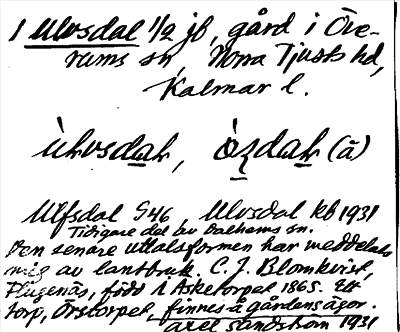 1 Ulvsdal 1/2 jb, gård i Öve-
rums sn, Norra Tjusts hd,
Kalmar l.
ùlvsdal, (å)
Ulfsdal S46, Ulvsdal kb 1931
Tidigare del av Dalhems sn.
Den senare uttalsformen har meddelats
mig av lantbruk. C. J. Blomkvist,
Flugenäs, född i Asketorpet 1865. Ett
torp, Örstorpet, finnes å gårdens ägor.
Axel Sandström 1931